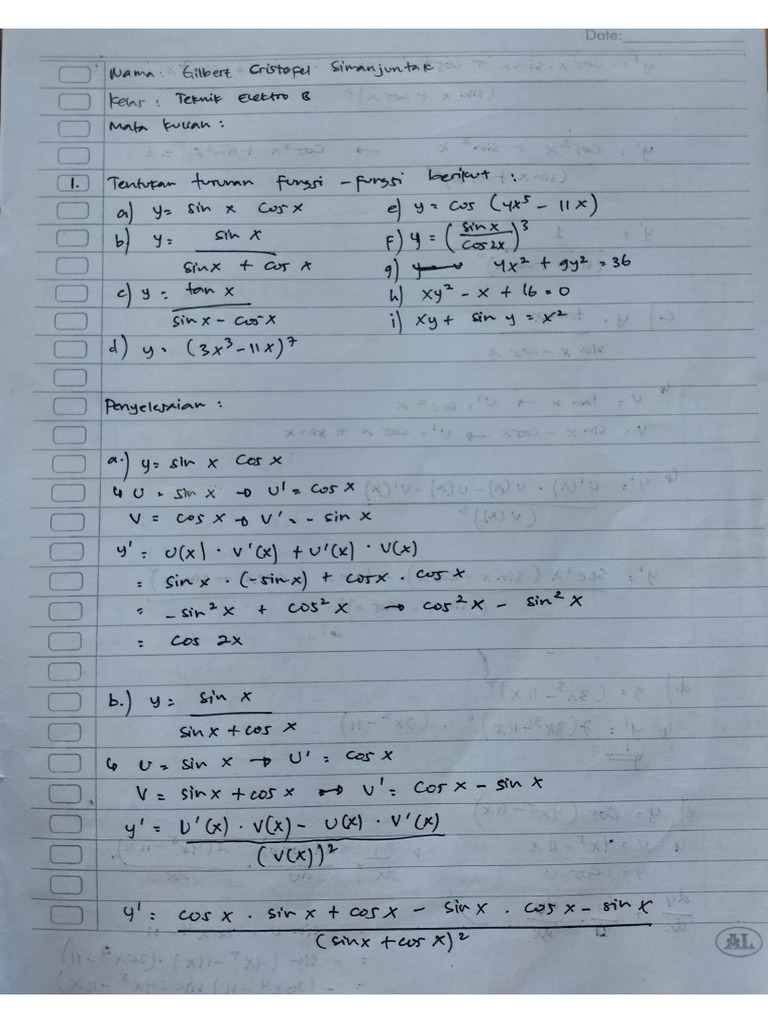 Date:
Nama: Gilbert Cristofel Simanjuntak
Kelas: Teknik Elektro B
Mata Kuliah:
1. Tentukan turunan fungsi-fungsi berikut:
a) y = sin x cos x
b) y = sin x / sinx + cos x
c) y = tan x / sin x - cos x
d) y = (3x³ - 11x)⁷
e) y = cos (4x⁵ - 11x)
f) y = (sin x / cos 2x)³
g) 4x² + 9y² = 36
h) xy² - x + 16 = 0
i) xy + sin y = x²
Penyelesaian:
a.) y = sin x cos x
↳ U = sin x → U' = cos x
V = cos x → V' = - sin x
y' = U(x) · V'(x) + U'(x) · V(x)
= sin x · (-sin x) + cos x · cos x
= - sin² x + cos² x → cos² x - sin² x
= cos 2x
b.) y = sin x / sin x + cos x
↳ U = sin x → U' = cos x
V = sin x + cos x → U' = cos x - sin x
y' = U'(x) · V(x) - U(x) · V'(x) / (V(x))²
y' = cos x · sin x + cos x - sin x · cos x - sin x / (sin x + cos x)²
AL